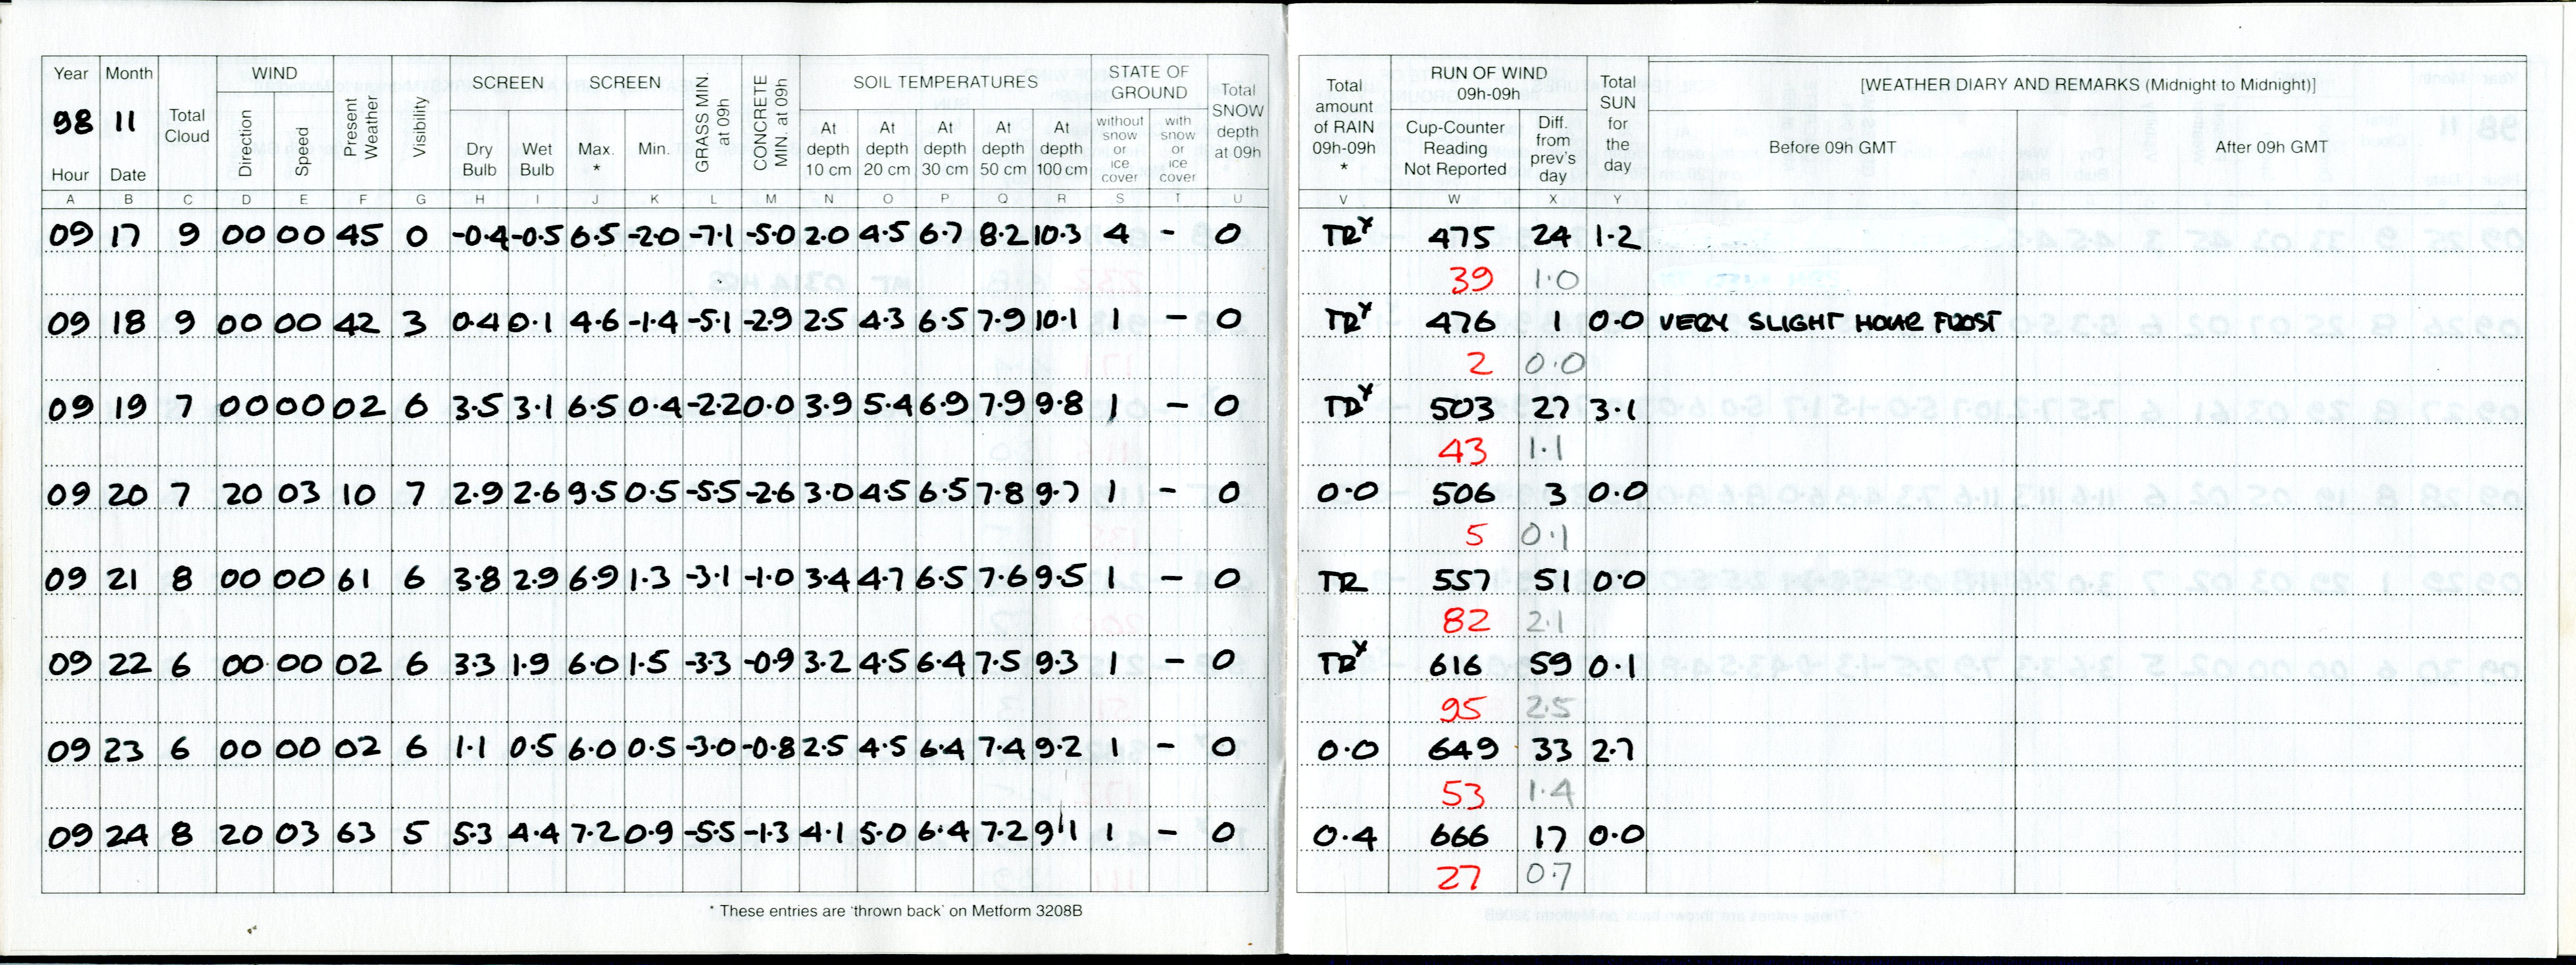 Year Month WIND SCREEN SCREEN SOIL TEMPERATURES STATE OF GROUND Total SNOW depth at 09h
98 11 Total Cloud Direction Speed Present Weather Visibility Dry Bulb Wet Bulb Max. * Min. GRASS MIN. at 09h CONCRETE MIN. at 09h At depth 10 cm At depth 20 cm At depth 30 cm At depth 50 cm At depth 100 cm without snow or ice cover with snow or ice cover
Hour Date
A B C D E F G H I J K L M N O P Q R S T U
09 17 9 00 00 45 0 -0.4 -0.5 6.5 -2.0 -7.1 -5.0 2.0 4.5 6.7 8.2 10.3 4 - 0
09 18 9 00 00 42 3 0.4 0.1 4.6 -1.4 -5.1 -2.9 2.5 4.3 6.5 7.9 10.1 1 - 0
09 19 7 00 00 02 6 3.5 3.1 6.5 0.4 -2.2 0.0 3.9 5.4 6.9 7.9 9.8 1 - 0
09 20 7 20 03 10 7 2.9 2.6 9.5 0.5 -5.5 -2.6 3.0 4.5 6.5 7.8 9.7 1 - 0
09 21 8 00 00 61 6 3.8 2.9 6.9 1.3 -3.1 -1.0 3.4 4.7 6.5 7.6 9.5 1 - 0
09 22 6 00 00 02 6 3.3 1.9 6.0 1.5 -3.3 -0.9 3.2 4.5 6.4 7.5 9.3 1 - 0
09 23 6 00 00 02 6 1.1 0.5 6.0 0.5 -3.0 -0.8 2.5 4.5 6.4 7.4 9.2 1 - 0
09 24 8 20 03 63 5 5.3 4.4 7.2 0.9 -5.5 -1.3 4.1 5.0 6.4 7.2 9.1 1 - 0
* These entries are 'thrown back' on Metform 3208B
Total amount of RAIN 09h-09h * RUN OF WIND 09h-09h Total SUN for the day [WEATHER DIARY AND REMARKS (Midnight to Midnight)]
Cup-Counter Reading Not Reported Diff. from prev's day Before 09h GMT After 09h GMT
V W X Y
TR 475 24 1.2
39 1.0
TR 476 1 0.0 VERY SLIGHT HOAR FROST
2 0.0
TR 503 27 3.1
43 1.1
0.0 506 3 0.0
5 0.1
TR 557 51 0.0
82 2.1
TR 616 59 0.1
95 2.5
0.0 649 33 2.7
53 1.4
0.4 666 17 0.0
27 0.7